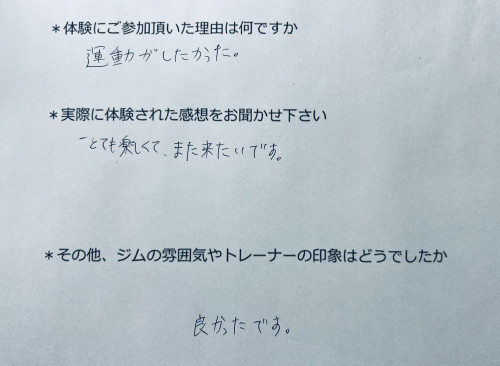 ＊体験にご参加頂いた理由は何ですか
運動がしたかった。
＊実際に体験された感想をお聞かせ下さい
とても楽しくて、また来たいです。
＊その他、ジムの雰囲気やトレーナーの印象はどうでしたか
良かったです。